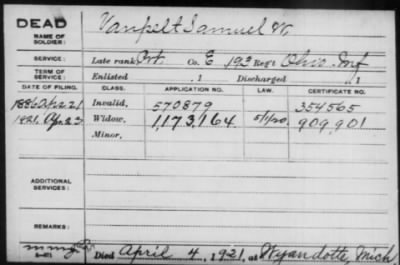 DEAD
NAME OF SOLDIER: Vanpelt Samuel W.
SERVICE: Late rank Pvt. Co. E 193 Reg't Ohio Inf
TERM OF SERVICE: Enlisted , 1 Discharged , 1
DATE OF FILING. CLASS. APPLICATION NO. LAW. CERTIFICATE NO.
1886 Apr. 21 Invalid, 570879 354565
1921, Ap. 23 Widow, 1,173,164 5/1/20. 909,901
Minor,
ADDITIONAL SERVICES:
REMARKS:
Died April 4, 1921, at Wyandotte, Mich